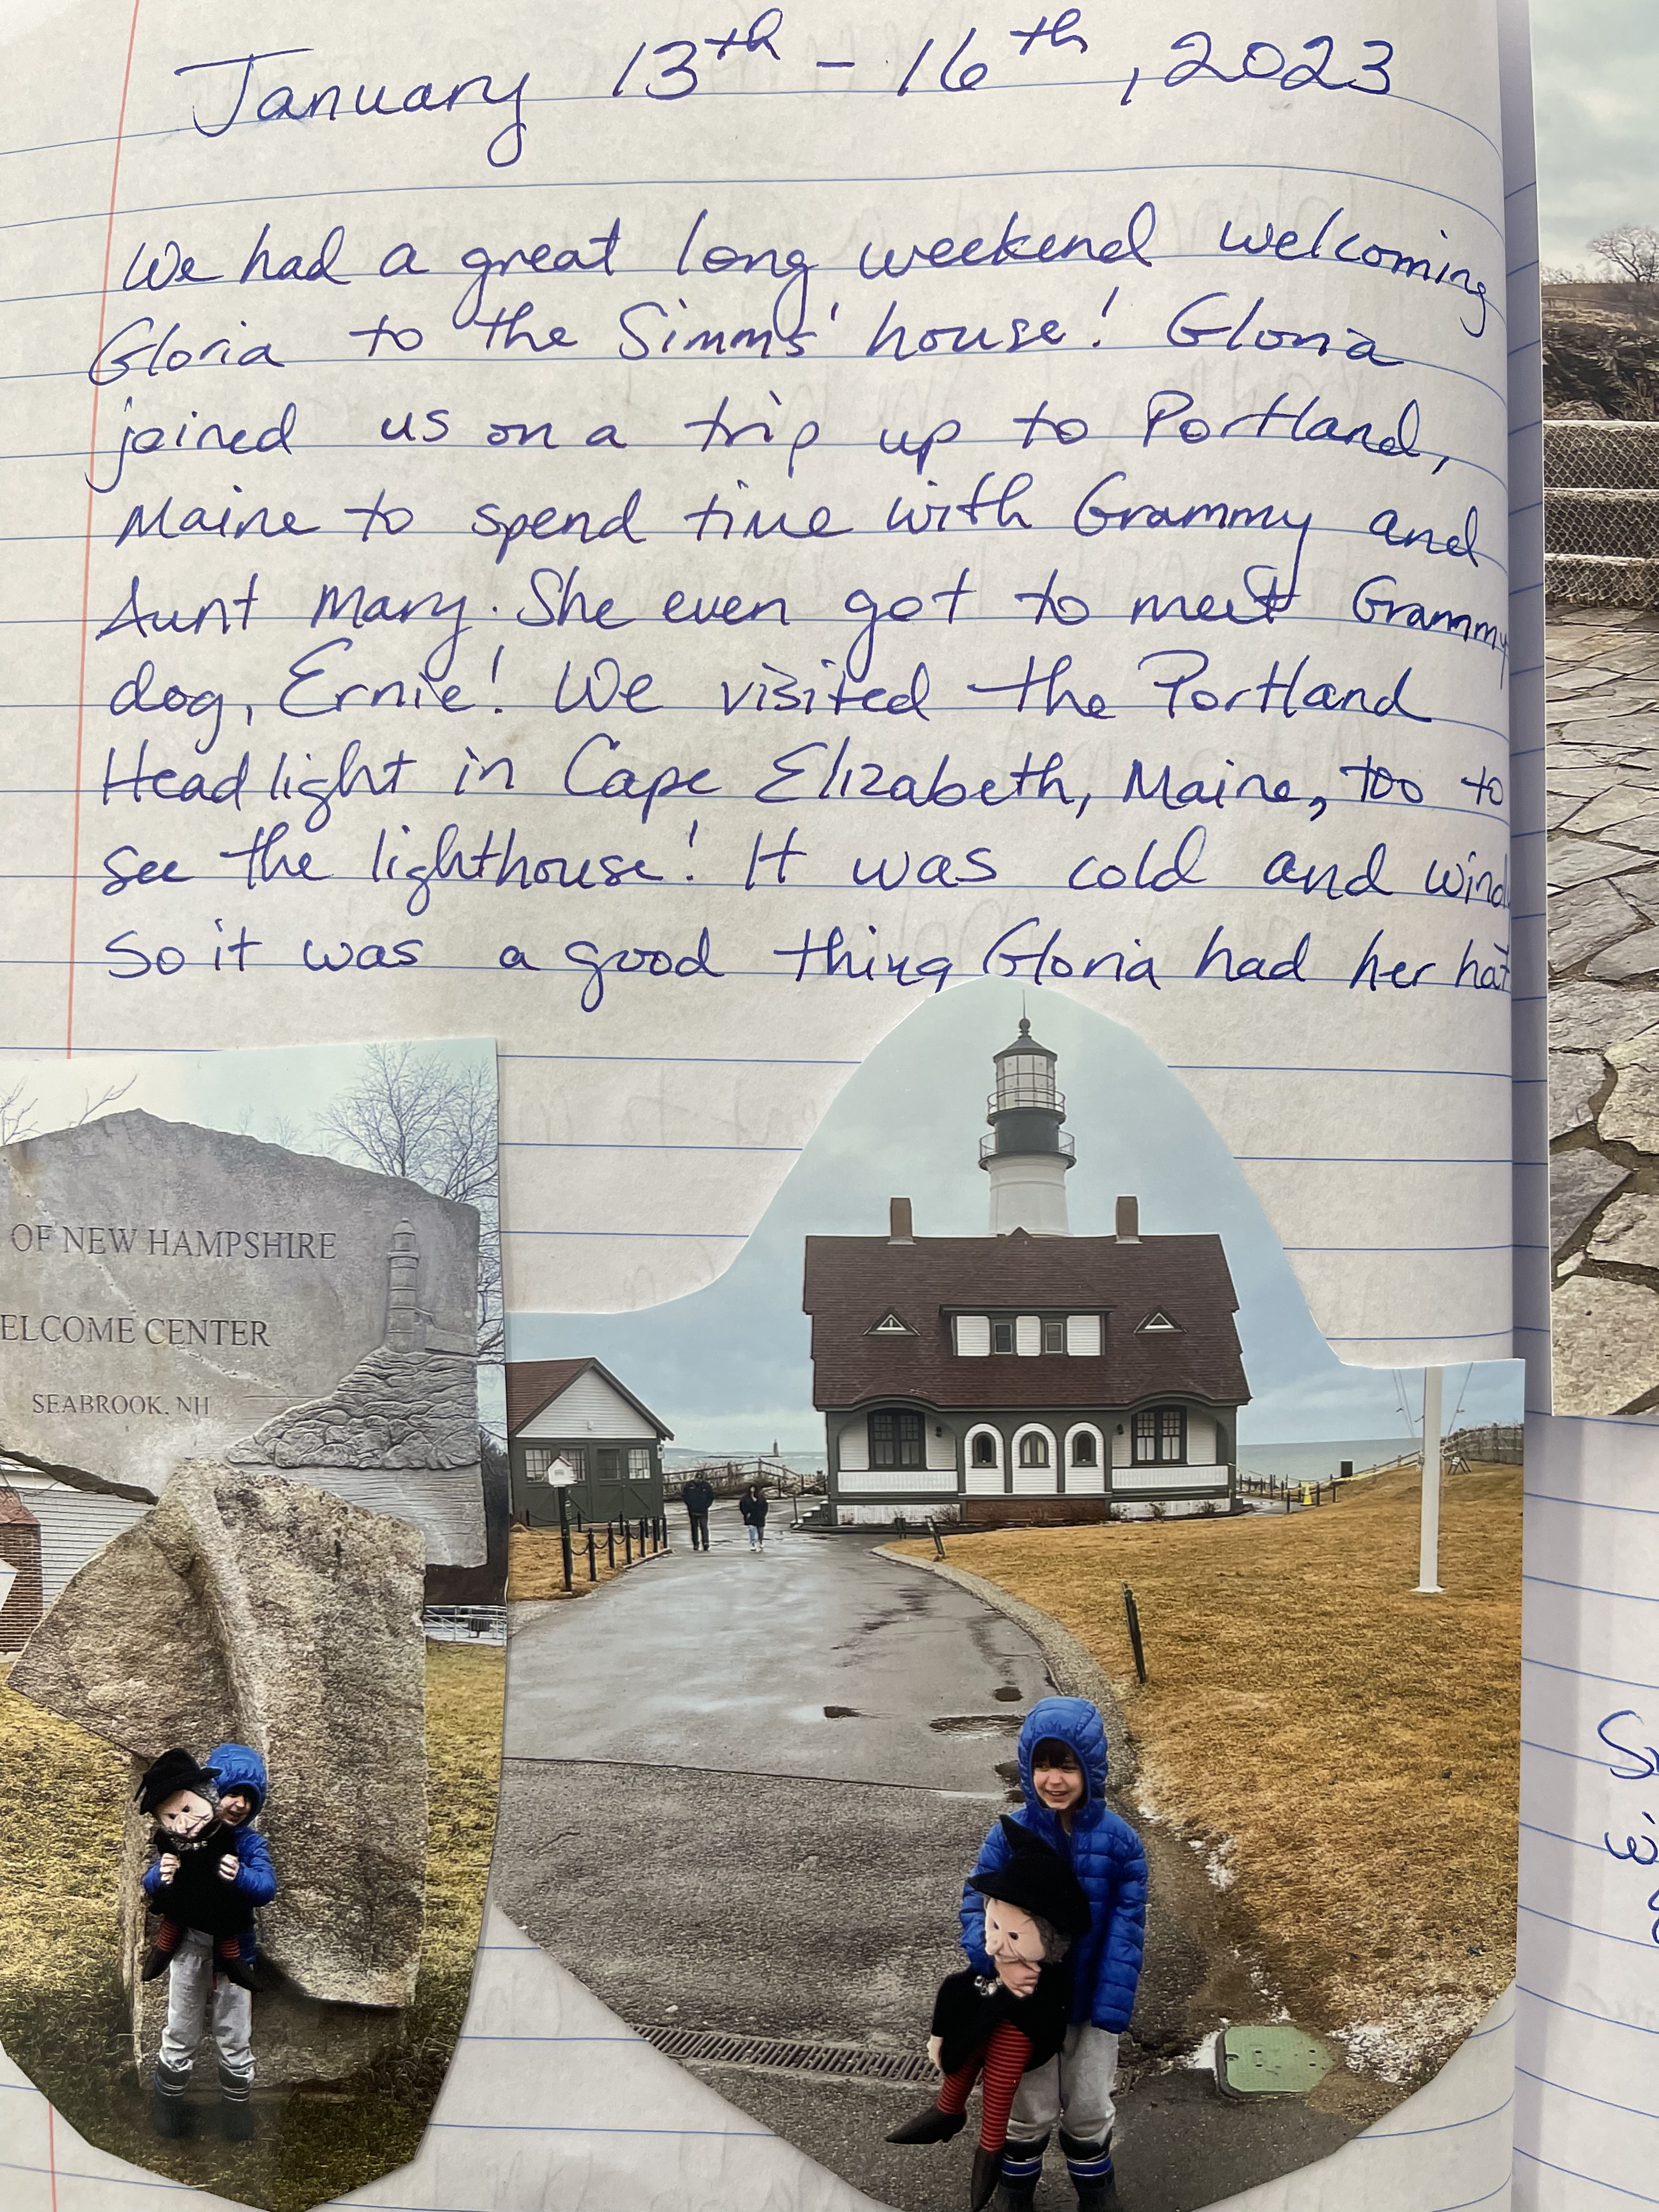 January 13th - 16th, 2023
We had a great long weekend welcoming
Gloria to the Simms' house! Gloria
joined us on a trip up to Portland,
Maine to spend time with Grammy and
Aunt Mary. She even got to meet Grammy
dog, Ernie! We visited the Portland
Headlight in Cape Elizabeth, Maine, too to
see the lighthouse! It was cold and wind
So it was a good thing Gloria had her hat
OF NEW HAMPSHIRE
ELCOME CENTER
SEABROOK, NH